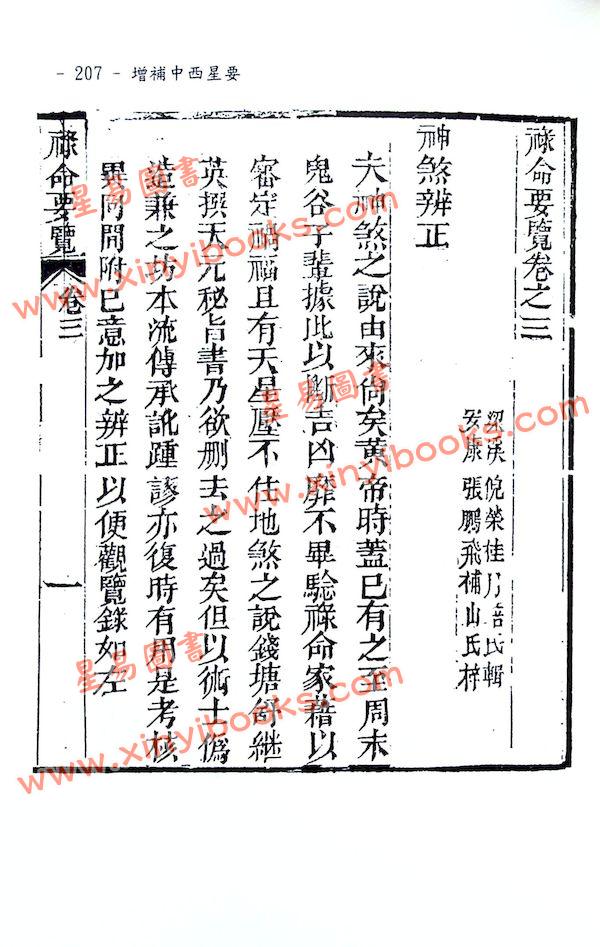 - 207 - 增補中西星要
祿命要覽卷之三
倪榮桂 氏輯
安康張鵬飛補山氏梓
神煞辨正
夫神煞之說由來尙矣黃帝時蓋已有之至周末
鬼谷子輩據此以斷吉凶靡不畢驗祿命家藉以
審定禍福且有天星壓不住地煞之說錢塘舒繼
英撰天元秘旨書乃欲刪去之過矣但以術士僞
造兼之坊本流傳承訛踵謬亦復時有用是考核
異同間附已意加之辨正以便觀覽錄如左
祿命要覽
卷三
一
星易圖書
www.xinyibooks.com
星易圖書
www.xinyibooks.com
星易圖書
www.xinyibooks.com